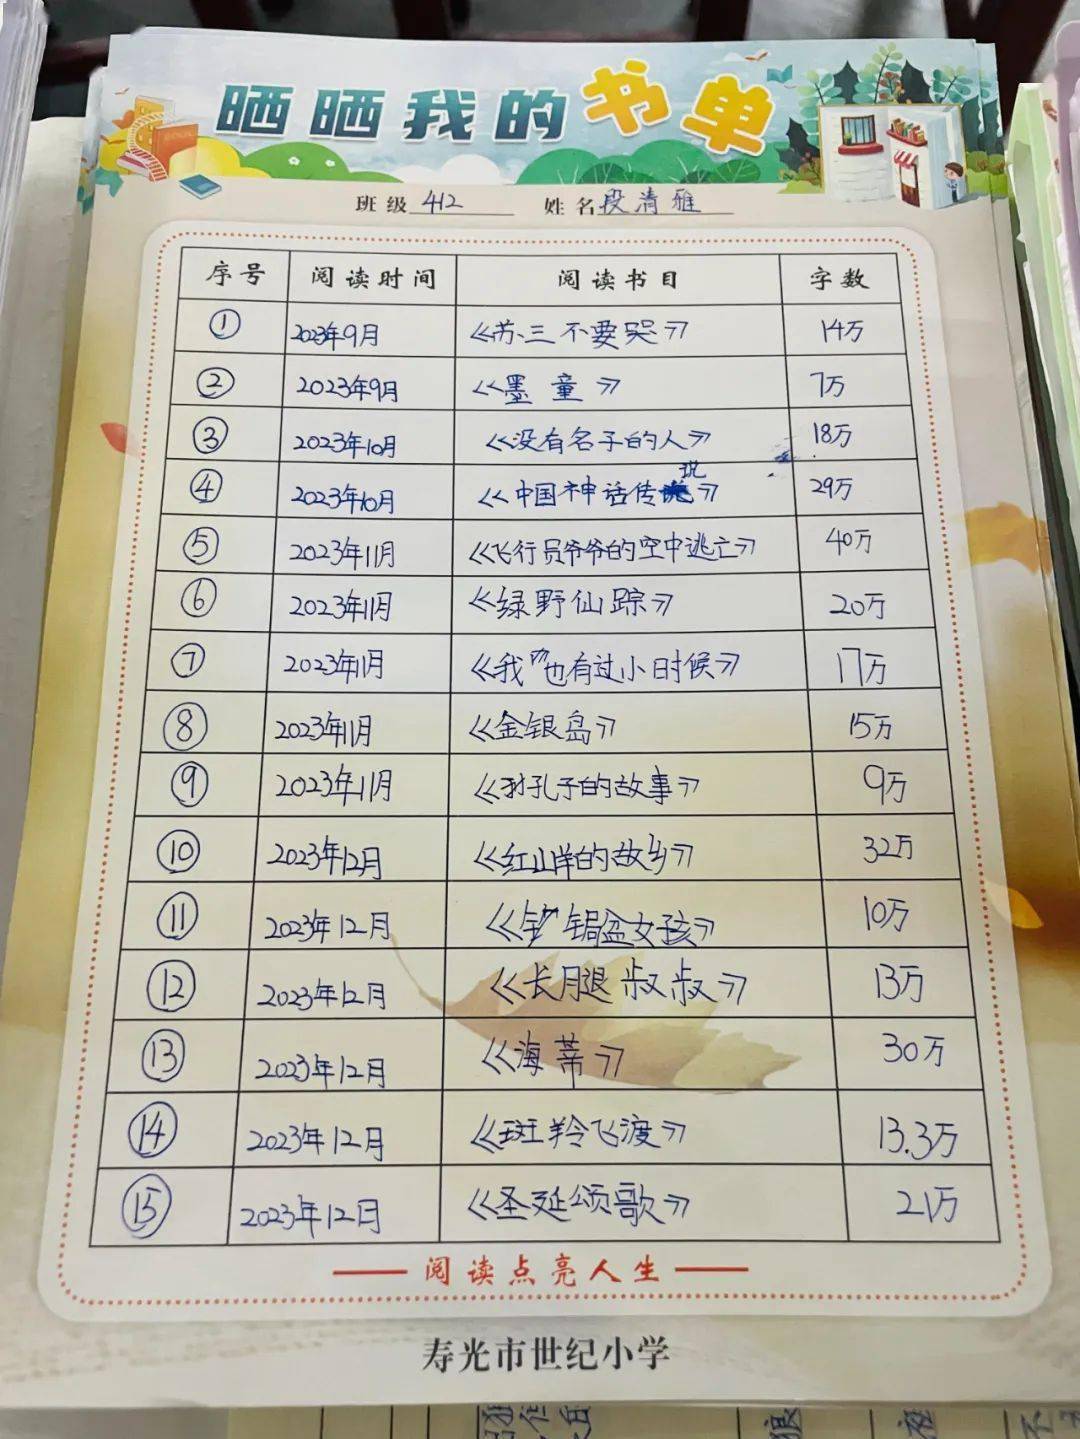 晒晒我的书单
班级 412 姓名 段清雅
序号 阅读时间 阅读书目 字数
① 2023年9月 《苏三不要哭》 14万
② 2023年9月 《墨童》 7万
③ 2023年10月 《没有名子的人》 18万
④ 2023年10月 《中国神话传说》 29万
⑤ 2023年11月 《飞行员爷爷的空中逃亡》 40万
⑥ 2023年11月 《绿野仙踪》 20万
⑦ 2023年11月 《我也有过小时候》 17万
⑧ 2023年11月 《金银岛》 15万
⑨ 2023年11月 《孔子的故事》 9万
⑩ 2023年12月 《红山羊的故乡》 32万
⑪ 2023年12月 《锔盆女孩》 10万
⑫ 2023年12月 《长腿叔叔》 13万
⑬ 2023年12月 《海蒂》 30万
⑭ 2023年12月 《斑羚飞渡》 13.3万
⑮ 2023年12月 《圣诞颂歌》 21万
阅读点亮人生
寿光市世纪小学